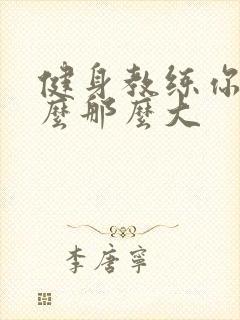 健身教练你
麼那麼大
李唐寧